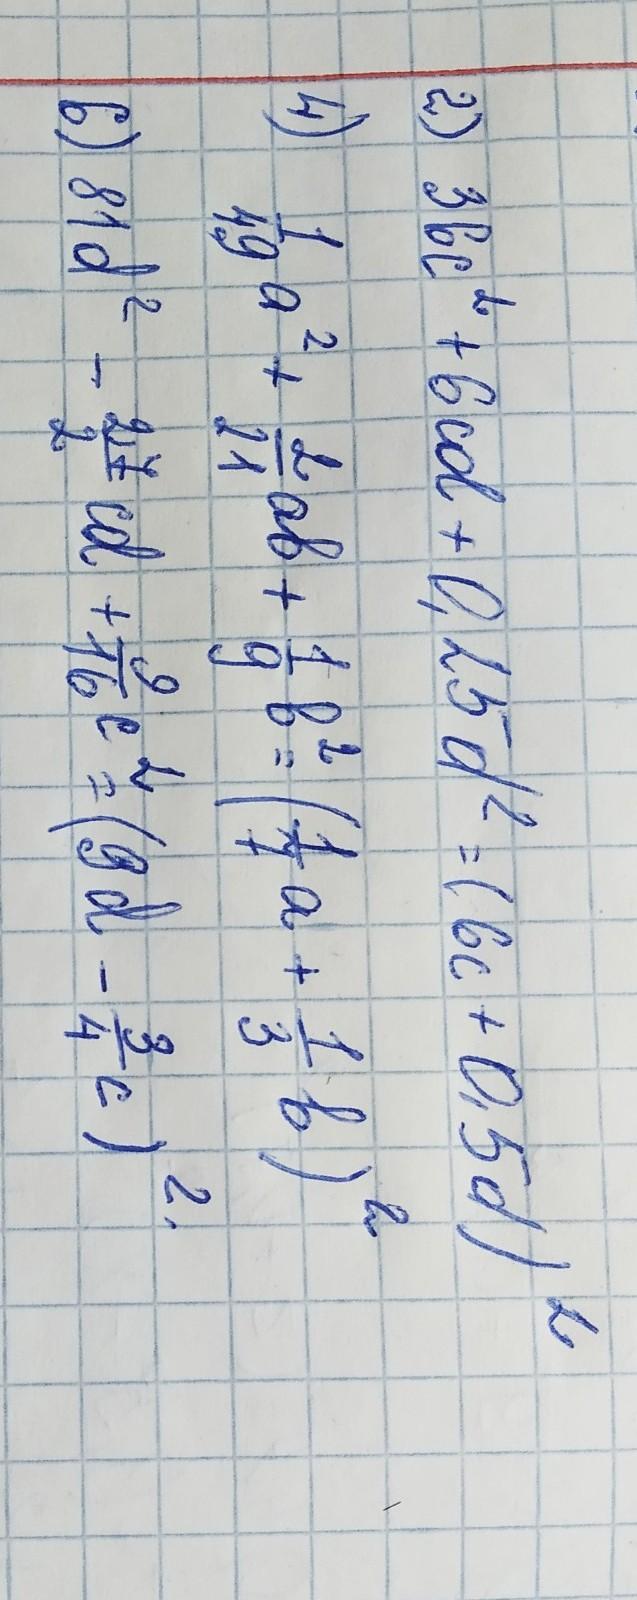 2) 36c² + 6cd + 0,25d² = (6c + 0,5d)²
4) 1/49 a² + 2/21 ab + 1/9 b² = (1/7 a + 1/3 b)²
6) 81d² - 27/2 cd + 9/16 c² = (9d - 3/4 c)².